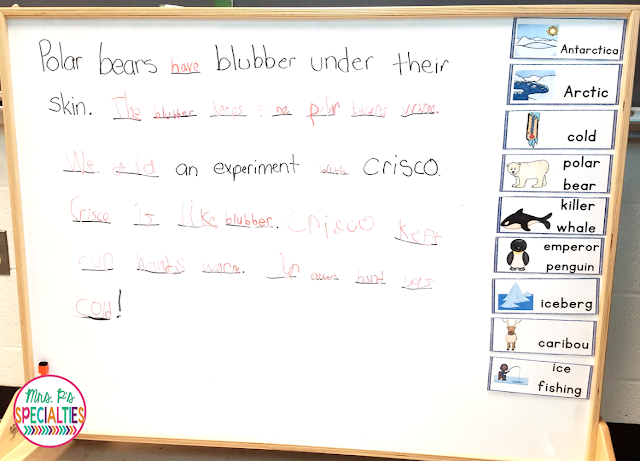 Polar bears have blubber under their
skin. The blubber keeps polar bears
We did an experiment Crisco.
Crisco is like blubber. Crisco kept
our hands warm. hand
cold!
Antarctica
Arctic
cold
polar
bear
killer
whale
emperor
penguin
iceberg
caribou
ice
fishing
Mrs. P's
SPECIALTIES